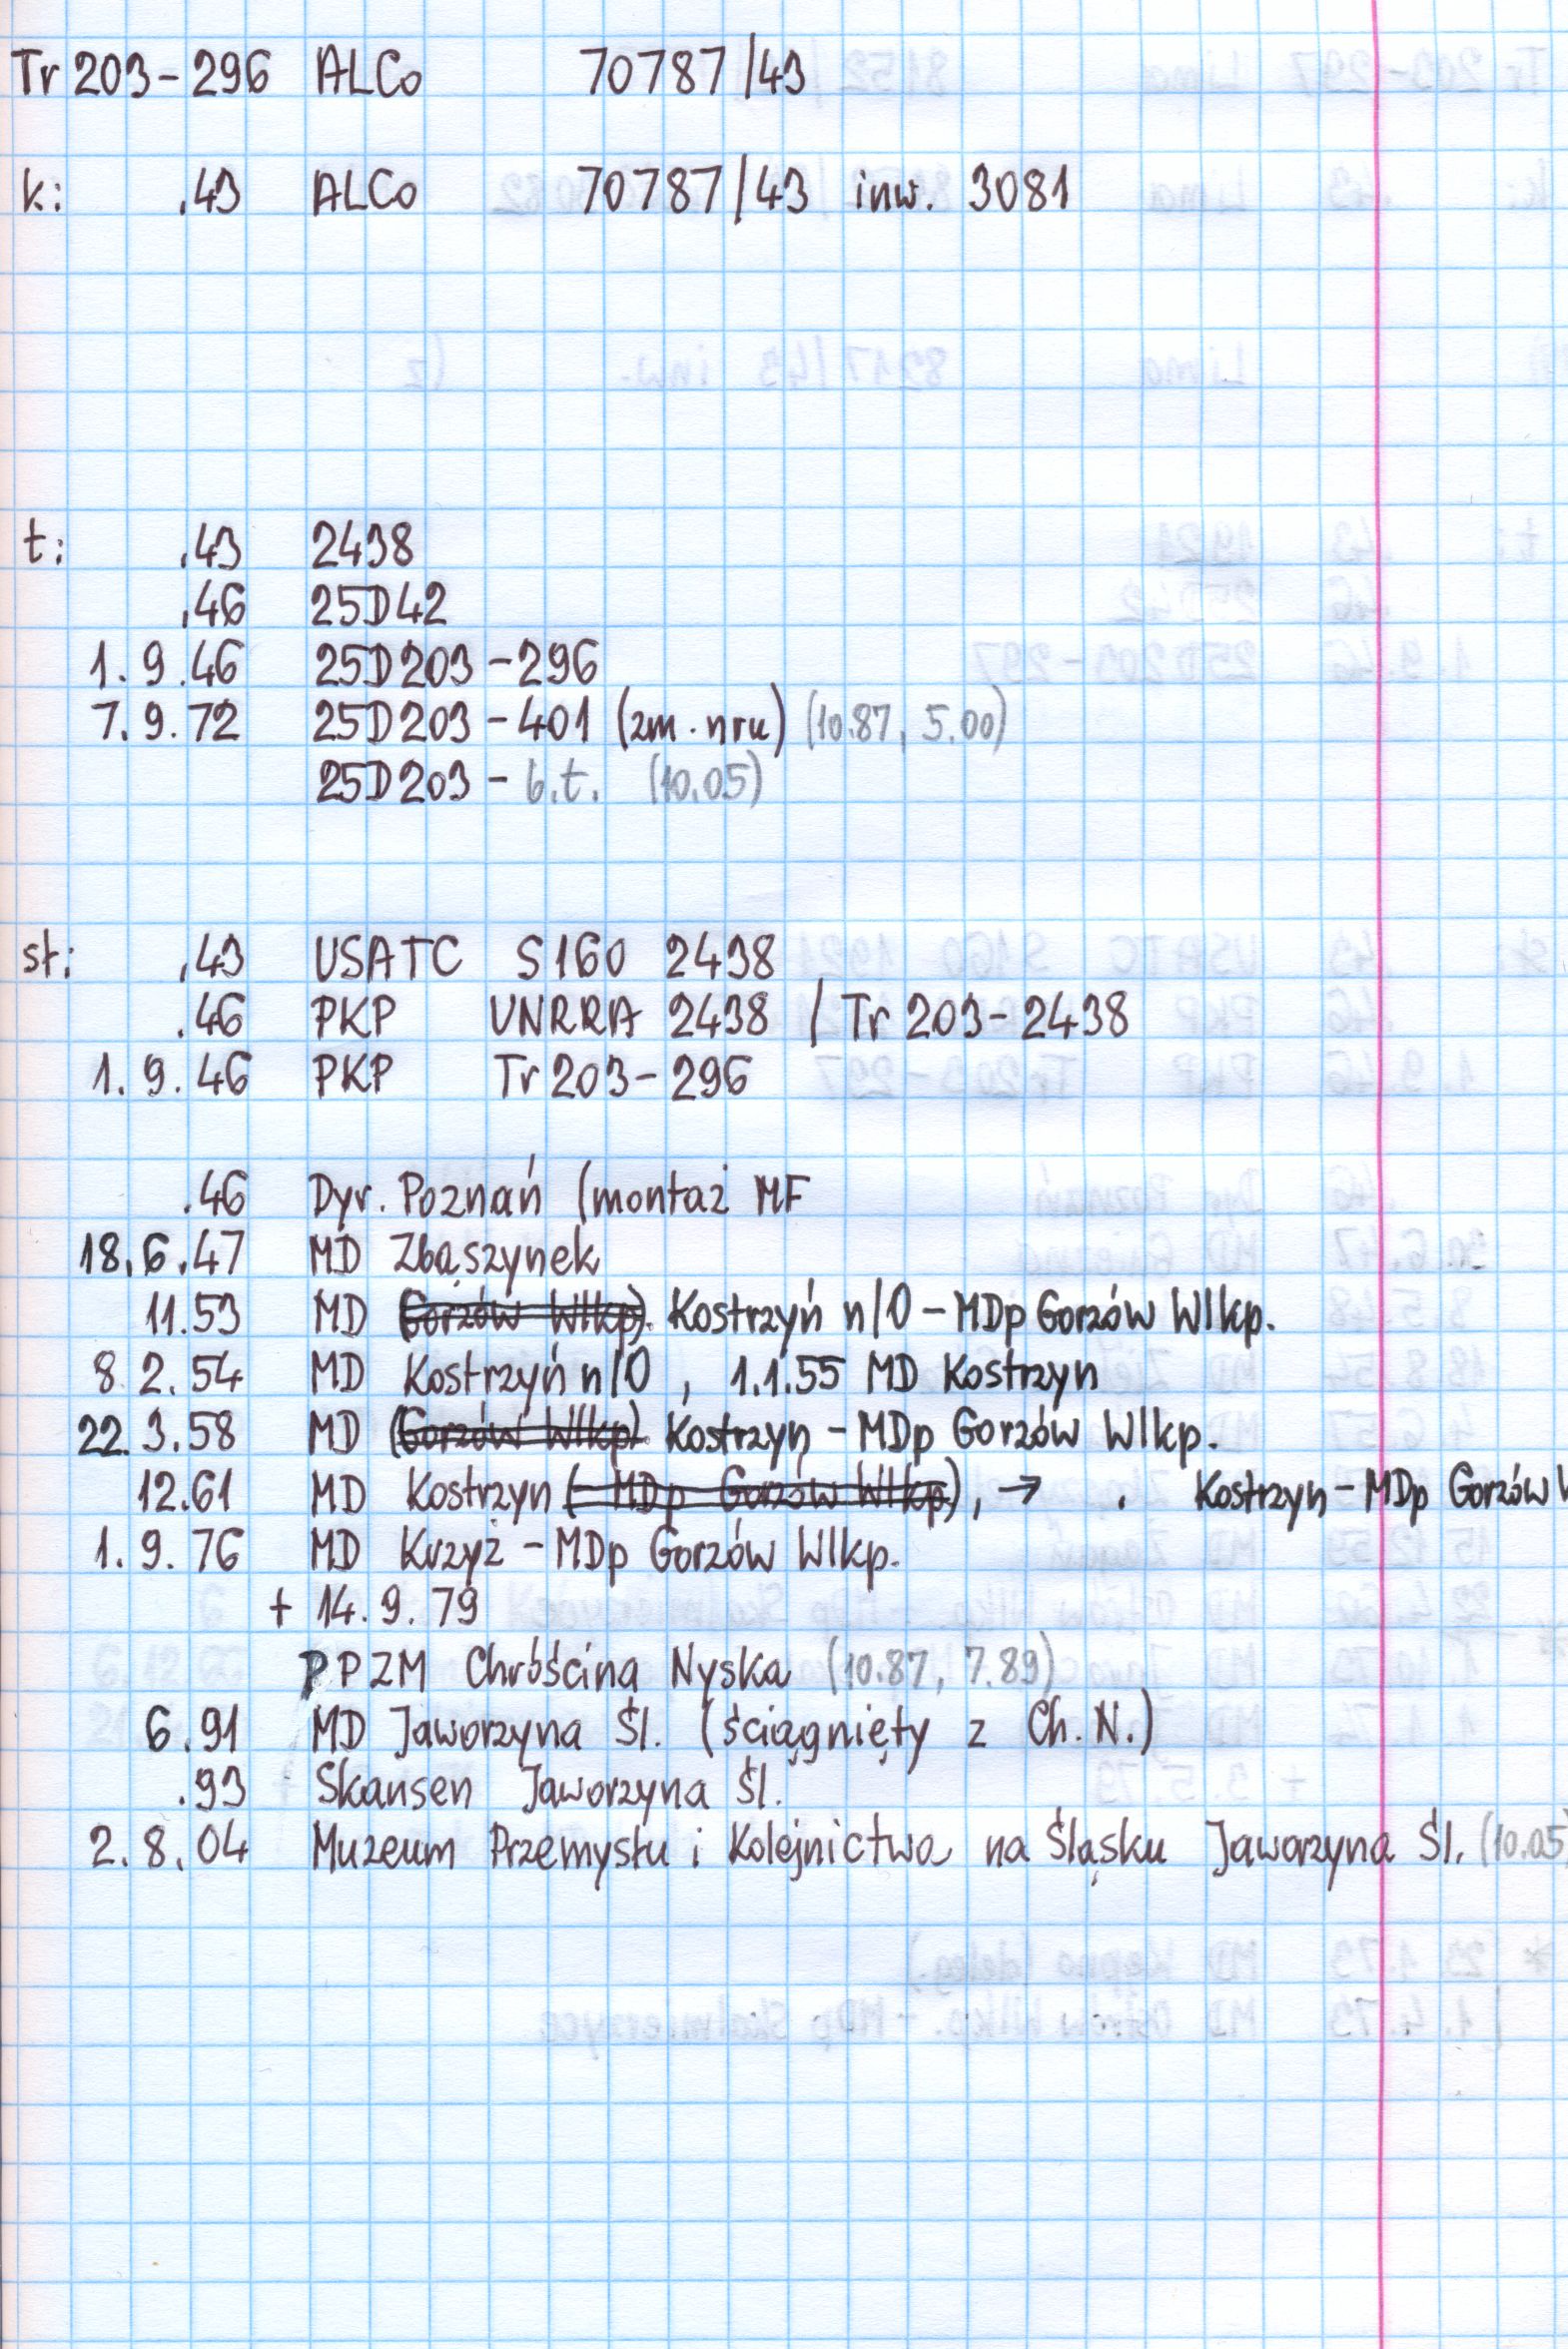 Tr 203-296 ALCo 70787/43
k: .43 ALCo 70787/43 inw. 3081
t: .43 2438
.46 25D42
1.9.46 25D203-296
7.9.72 25D203-401 (zm. nru) (10.87, 5.00)
25D203- b.t. (10.05)
st: .43 USATC S160 2438
.46 PKP UNRRA 2438 / Tr 203-2438
1.9.46 PKP Tr 203-296
.46 Dyr. Poznań (montaż MF
18.6.47 MD Zbąszynek
11.53 MD (Gorzów Wlkp). Kostrzyń n/O - MDp Gorzów Wlkp.
8.2.54 MD Kostrzyń n/O , 1.1.55 MD Kostrzyn
22.3.58 MD (Gorzów Wlkp). Kostrzyn - MDp Gorzów Wlkp.
12.61 MD Kostrzyn (- MDp Gorzów Wlkp), → . Kostrzyn - MDp Gorzów W
1.9.76 MD Krzyż - MDp Gorzów Wlkp.
+ 14.9.79
PPZM Chróścina Nyska (10.87, 7.89)
6.91 MD Jaworzyna Śl. (ściągnięty z Ch.N.)
.93 Skansen Jaworzyna Śl.
2.8.04 Muzeum Przemysłu i Kolejnictwa na Śląsku Jaworzyna Śl. (10.05)